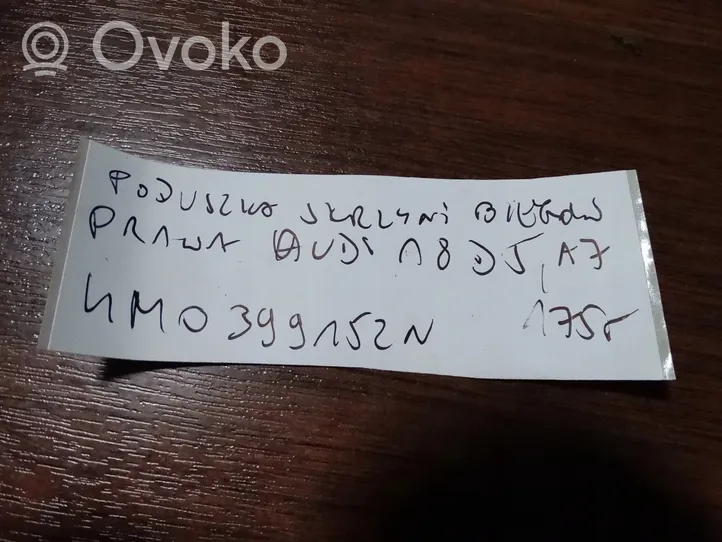 Ovoko
PODUSZKA SKRZYNI BIEGÓW
PRAWA AUDI A8 D5, A7
4M0399152N 175r